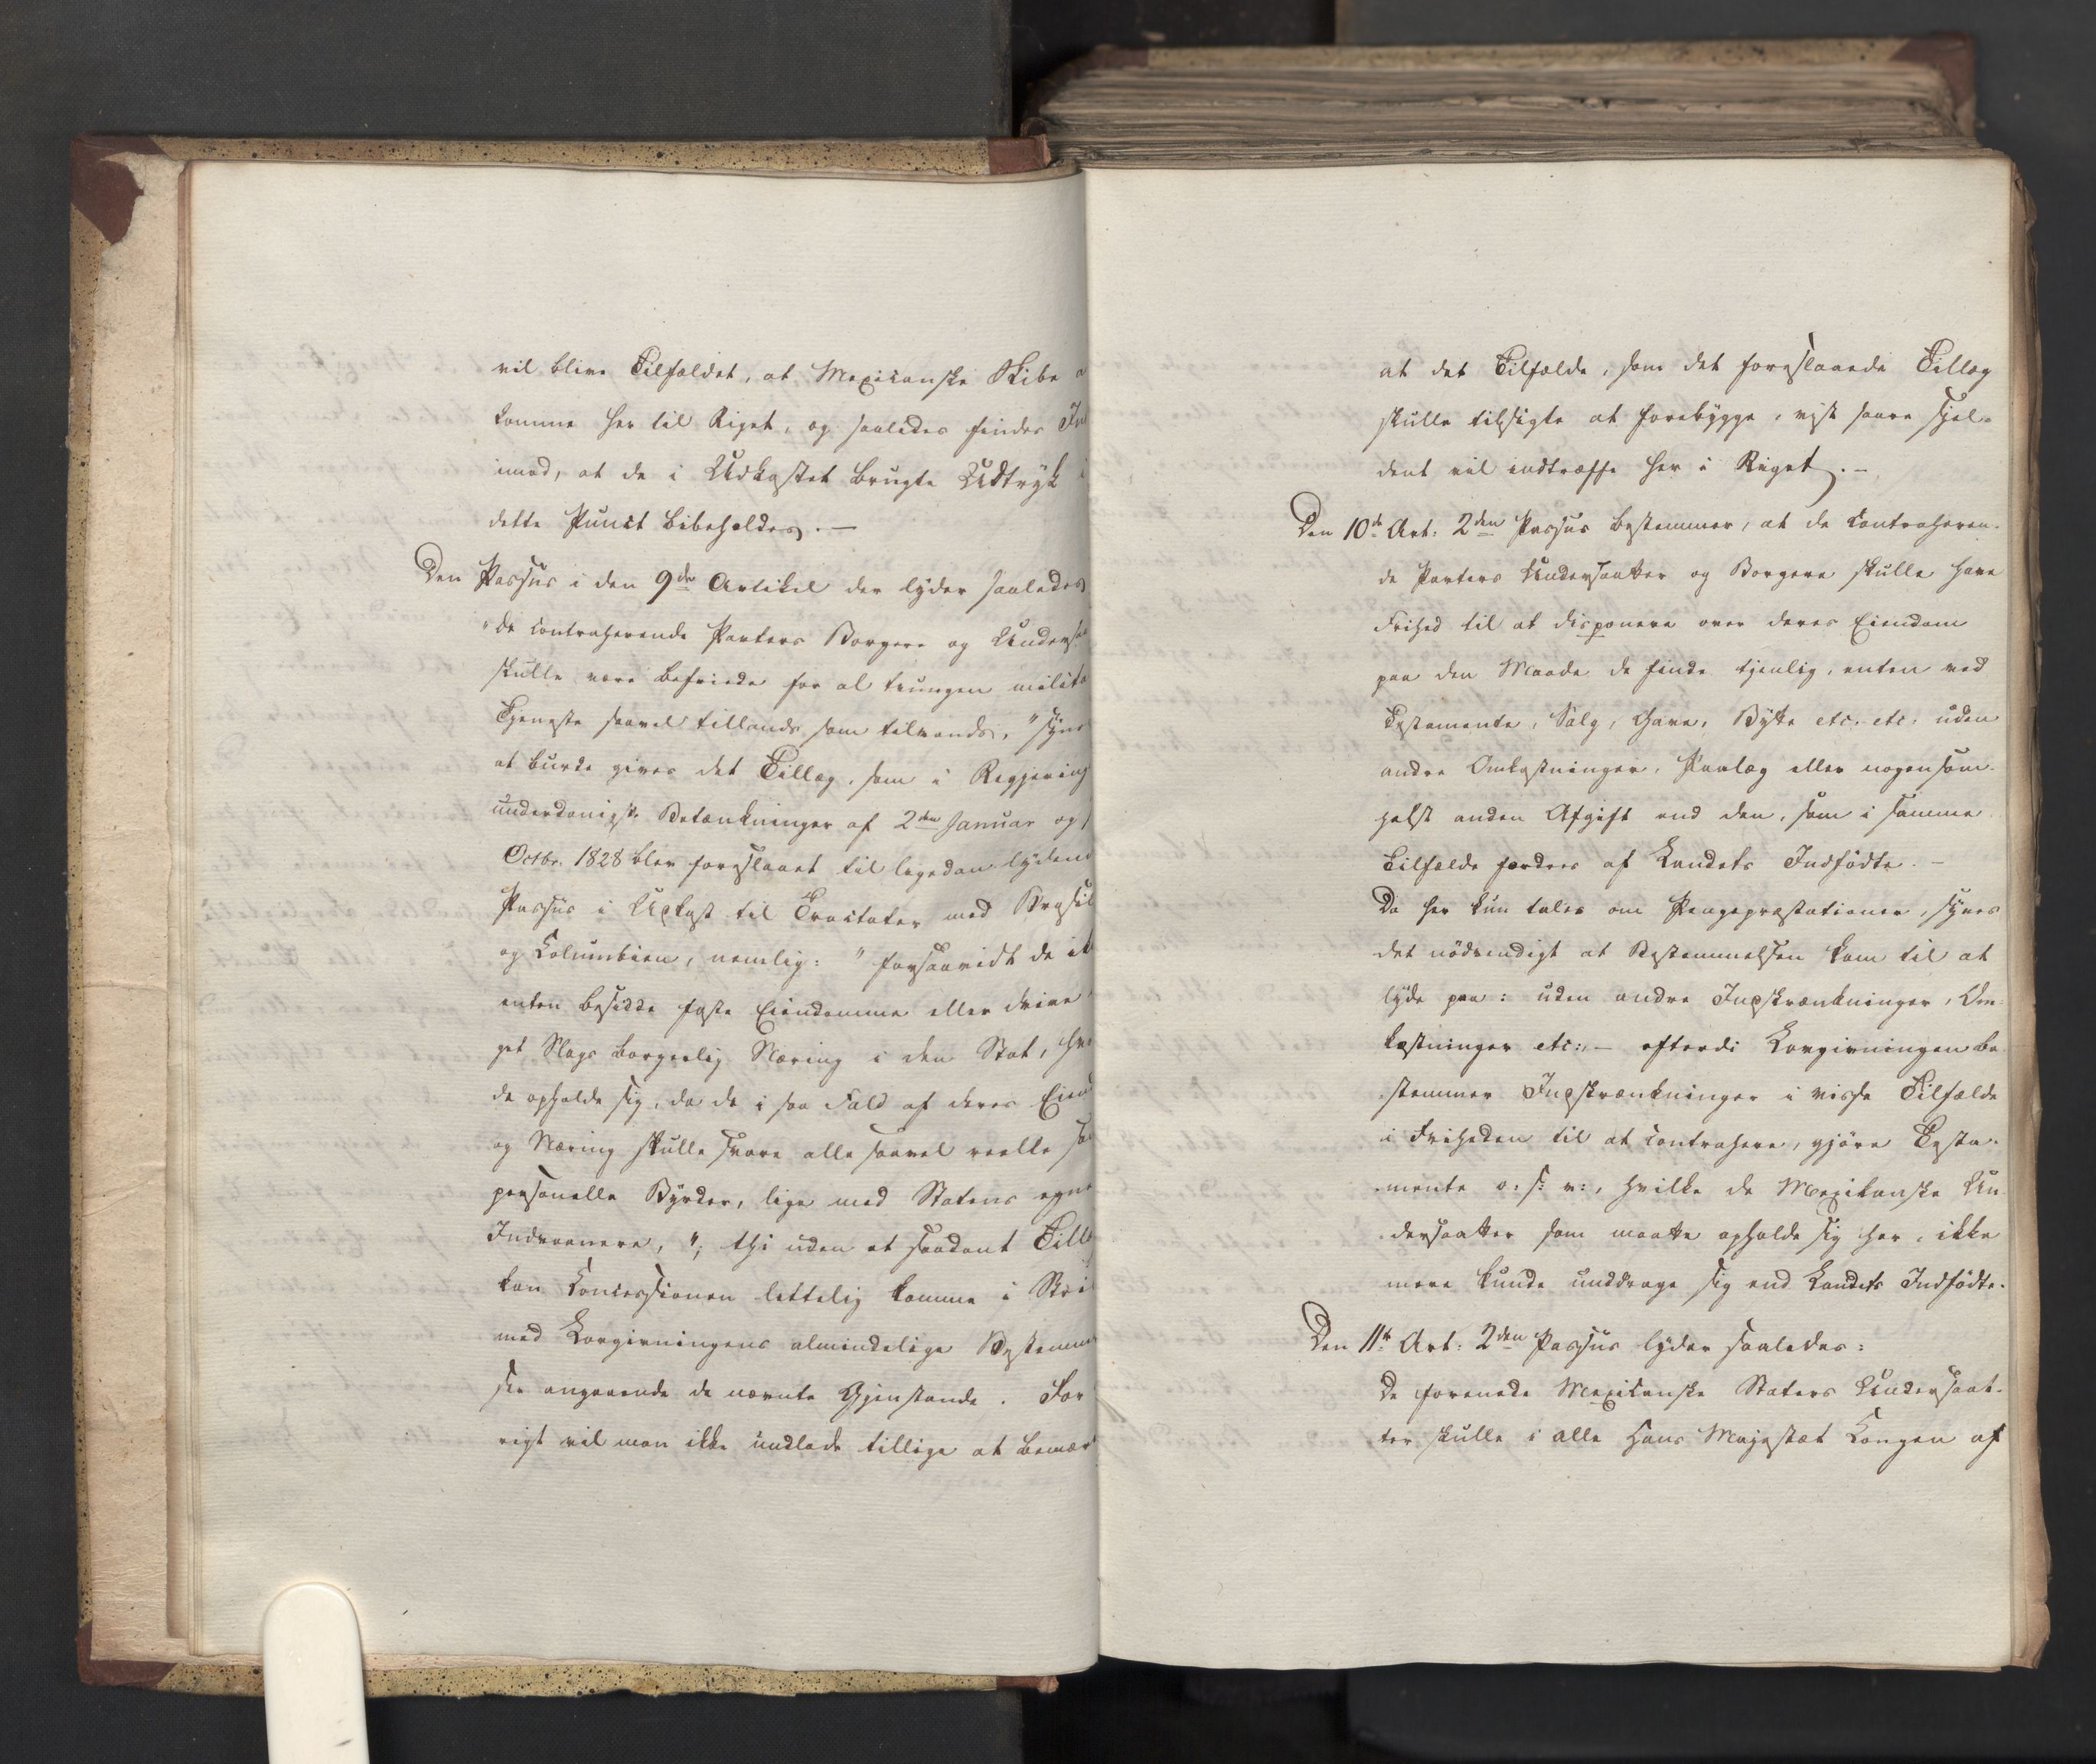 vil blive Tilfældet, at Mexicanske Skibe a
komme her til Riget, og saaledes findes In
imod, at de i Udkastet brugte Udtryk i
dette Punct bibeholdes. —
Den Passus i den 9de Artikel der lyder saaledes
"de contraherende Parters Borgere og Undersa
skulle være befriede for al tvungen milita
Tjeneste saavel tillands som tilvands," syne
at burde gives det Tillæg, som i Regjering
underdanigste Betænkninger af 2den Januar og
Octbr. 1828 blev foreslaaet til ligedan lydend
Passus i Udkast til Tractater med Brasil
og Columbien, nemlig: "forsaavidt de ik
enten besidde faste Eiendomme eller drive
get Slags borgerlig Næring i den Stat, hvo
de opholde sig, da de i saa Fald af deres Eien
og Næring skulle svare alle saavel reelle so
personelle Byrder, lige med Statens egne
Indvaanere,"; thi uden et saadant Tillæ
kan Concessionen lettelig komme i Stri
med Lovgivningens almindelige Bestemme
ser angaaende de nævnte Gjenstande. For
rigt vil man ikke undlade tillige at bemær
at det Tilfælde, som det foreslaaede Tillæg
skulle tilsigte at forebygge, vist saare sjel-
dent vil indtræffe her i Riget. —
Den 10de Art. 2den Passus bestemmer, at de contraheren-
de Parters Undersaatter og Borgere skulle have
Frihed til at disponere over deres Eiendom
paa den Maade de finde tjenlig, enten ved
Testamente, Salg, Gave, Bytte etc. etc. uden
andre Omkostninger, Paalæg eller nogensom-
helst anden Afgift end den, som i samme
Tilfælde fordres af Landets Indfödte. —
Da her kun tales om Pengepræstationer, synes
det nödvendigt at Bestemmelsen kom til at
lyde paa: uden andre Indskrænkninger, Om-
kostninger etc: — efterdi Lovgivningen be
stemmer Indskrænkninger i visse Tilfælde
i Friheden til at contrahere, gjöre Testa-
mente o: s: v:, hvilke de Mexikanske Un
dersaatter som maatte opholde sig her, ikke
mere kunde unddrage sig end Landets Indfödte.
Den 11te Art. 2den Passus lyder saaledes:
De forenede Mexicanske Staters Undersaat-
ter skulle i alle Hans Majestæt Kongen af